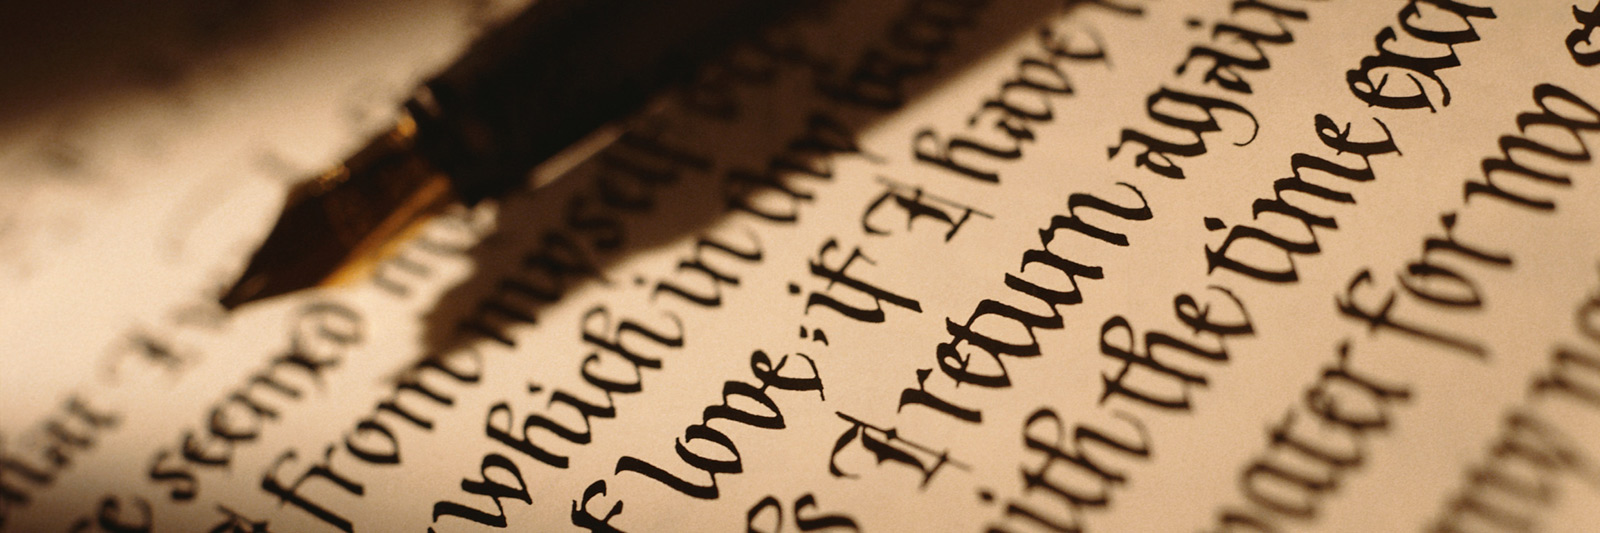 that I
ce seem'd my
from myself
which in thy breas
f love; if I have
s I return again
ith the time exc
water for my st
my na